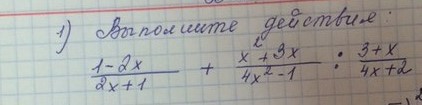 1) Выполните действия:
(1-2x)/(2x+1) + (x²+3x)/(4x²-1) : (3+x)/(4x+2)